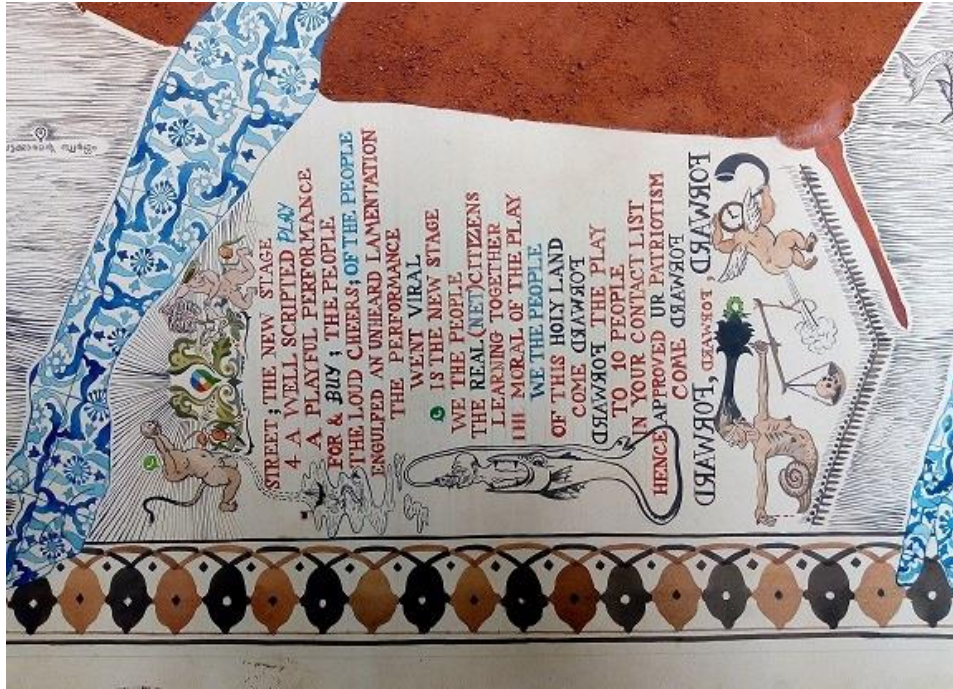 STREET ; THE NEW STAGE
4 A WELL SCRIPTED PLAY
A PLAYFUL PERFORMANCE
FOR & BUY ; THE PEOPLE
THE LOUD CHEERS; OF THE PEOPLE
ENGULFED AN UNHEARD LAMENTATION
THE PERFORMANCE
WENT VIRAL
IS THE NEW STAGE
WE THE PEOPLE
THE REAL (NET)CITIZENS
LEARNING TOGETHER
THE MORAL OF THE PLAY
WE THE PEOPLE
OF THIS HOLY LAND
COME FORWARD
FORWARD THE PLAY
TO 10 PEOPLE
IN YOUR CONTACT LIST
HENCE APPROVED UR PATRIOTISM
COME FORWARD
FORWARD, FORWARD, FORWARD